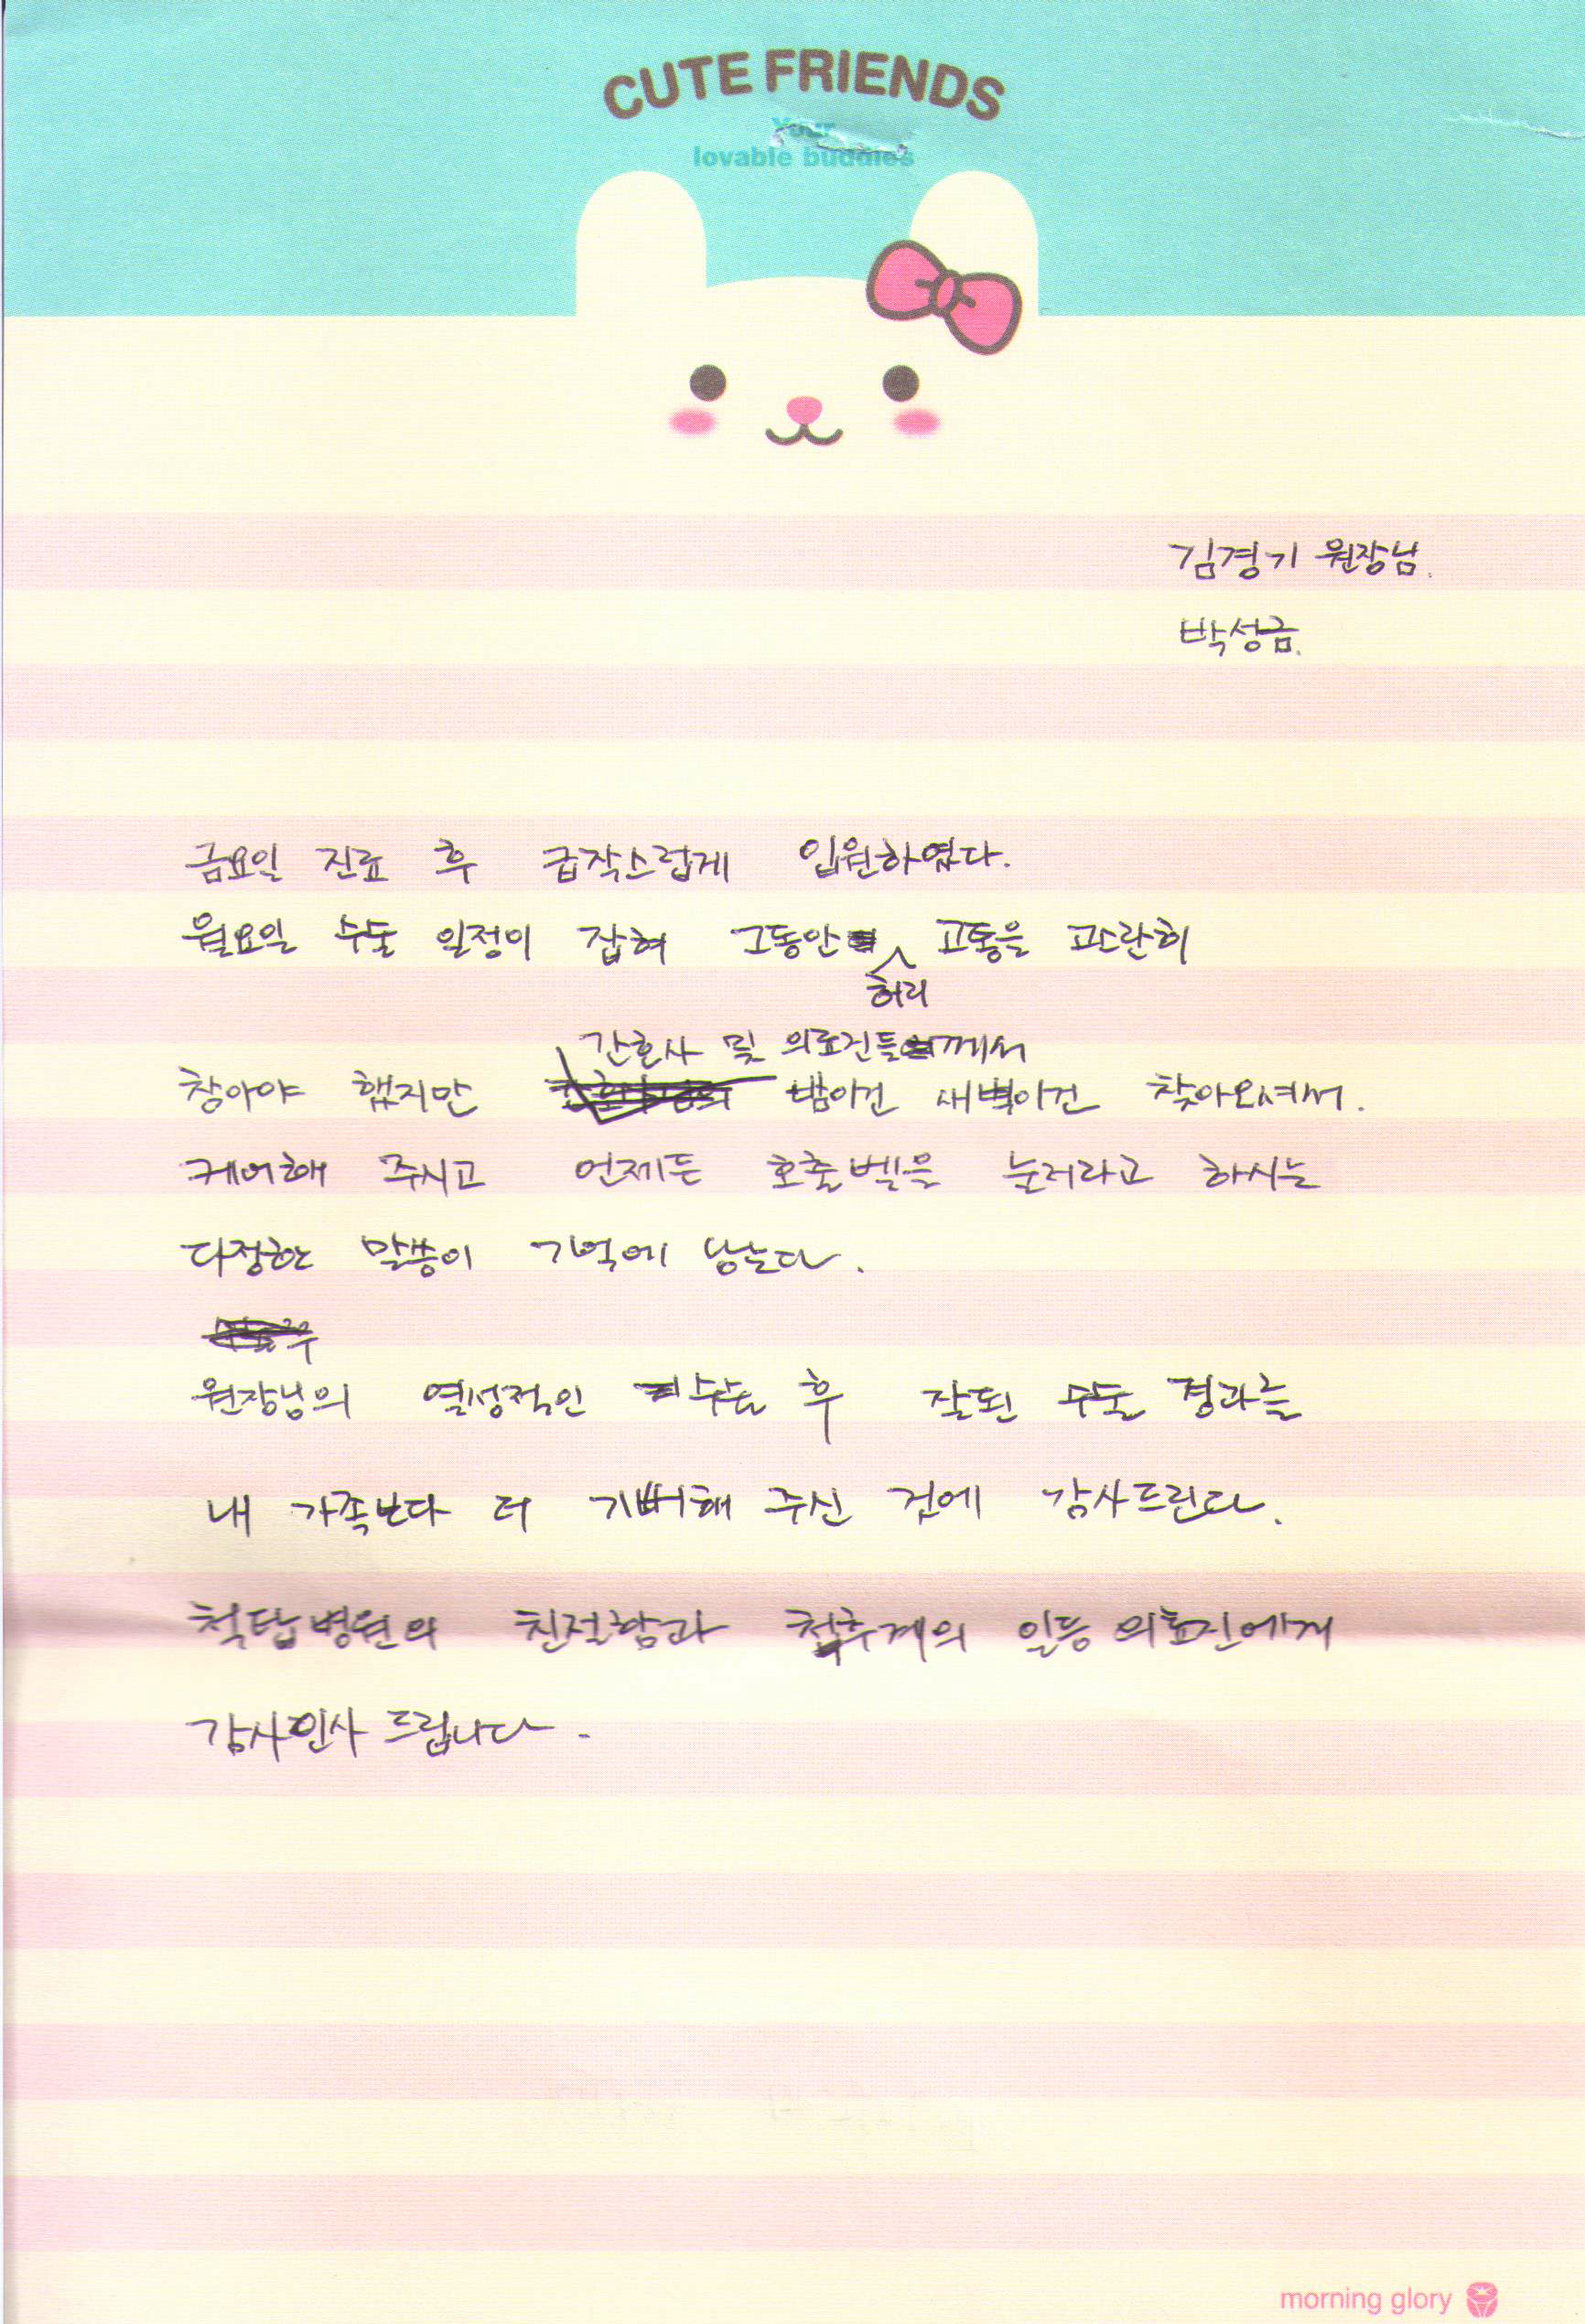 CUTE FRIENDS
Your
lovable buddies
김경기 원장님.
박성금.
금요일 진료 후 급작스럽게 입원하였다.
월요일 수술 일정이 잡혀 그동안 허리 고통을 고스란히
간호사 및 의료진들께서
참아야 했지만 밤이건 새벽이건 찾아오셔서.
케어해 주시고 언제든 호출벨을 눌러라고 하시는
다정한 말씀이 기억에 남는다.
원장님의 열성적인 수술 후 잘된 수술 경과를
내 가족보다 더 기뻐해 주신 것에 감사드린다.
척탑병원의 친절함과 척추계의 일등 의료진에게
감사인사 드립니다.
morning glory